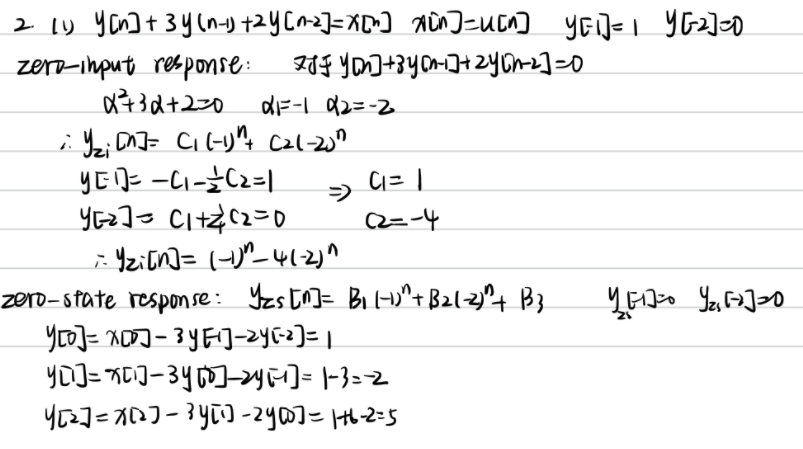 2. (1) y[n]+3y(n-1)+2y[n-2]=x[n] x[n]=u[n] y[-1]=1 y[-2]=0
zero-input response: 对于 y[n]+3y[n-1]+2y[n-2]=0
α²+3α+2=0 α1=-1 α2=-2
∴ yzi[n]= C1(-1)^n+ C2(-2)^n
y[-1]= -C1-½C2=1 ⇒ C1= 1
y[-2]= C1+¼C2=0 C2=-4
∴ yzi[n]= (-1)^n-4(-2)^n
zero-state response: yzs[n]= B1(-1)^n+B2(-2)^n+ B3 yzs[-1]=0 yzs[-2]=0
y[0]= x[0]-3y[-1]-2y[-2]= 1
y[1]= x[1]-3y[0]-2y[-1]= 1-3=-2
y[2]= x[2]-3y[1]-2y[0]= 1+6-2=5